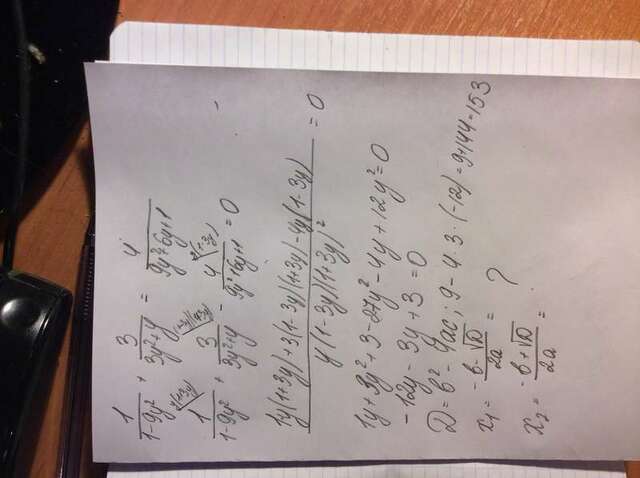 1/(1-9y²) + 3/(3y²+y) = 4/(9y²+6y+1)
1/(1-9y²) + 3/(3y²+y) - 4/(9y²+6y+1) = 0
(1y(1+3y)+3(1-3y)(1+3y)-4y(1-3y))/(y(1-3y)(1+3y)²) = 0
1y+3y²+3-27y²-4y+12y²=0
-12y-3y+3=0
D=b²-4ac; 9-4·3·(-12)=9+144=153
x₁ = (-b-√D)/2a = ?
x₂ = (-b+√D)/2a =